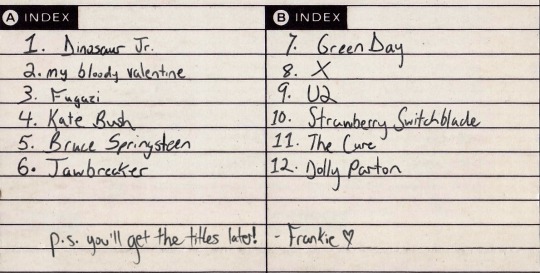 A INDEX
1. Dinosaur Jr.
2. my bloody valentine
3. Fugazi
4. Kate Bush
5. Bruce Springsteen
6. Jawbreaker
B INDEX
7. Green Day
8. X
9. U2
10. Strawberry Switchblade
11. The Cure
12. Dolly Parton
p.s. you'll get the titles later! - Frankie ♡